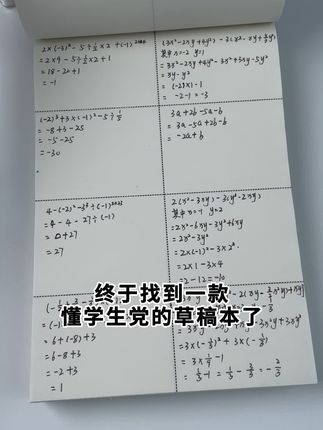 2×(-3)²-5÷½×2+(-1)²⁰²⁴
=2×9-5÷½×2+1
=18-20+1
=-1
(3x²-2xy+4y²)-3(x²-xy+
其中x=-2 y=1
=3x²-2xy+4y²-3x²+3xy-5y²
=xy-y²
=(-2)×1-1
-2-1=-3
(-2)³+3×(-1)²-5÷⅕
=-8+3-25
=-5-25
=-30
3a+2b-5a-b
=3a-5a+2b-b
=-2a+b
4-(-2)²-3³÷(-1)²⁰²³
=4-4-27÷(-1)
=0+27
=27
2(x²-3xy)-3(y²-2xy)
其中x=-1 y=2
=2x²-6xy-3y²+6xy
=2x²-3y²
=2×(-1)²-3×2²
=2×1-3×4
=2-12=-10
终于找到一款
懂学生党的草稿本了
=6+(-8)+3
=6-8+3
=-2+3
=1
=3×(-⅓)²+3×(-⅓)
=3×1/9-1
=⅓-1=⅓-3/3=-⅔